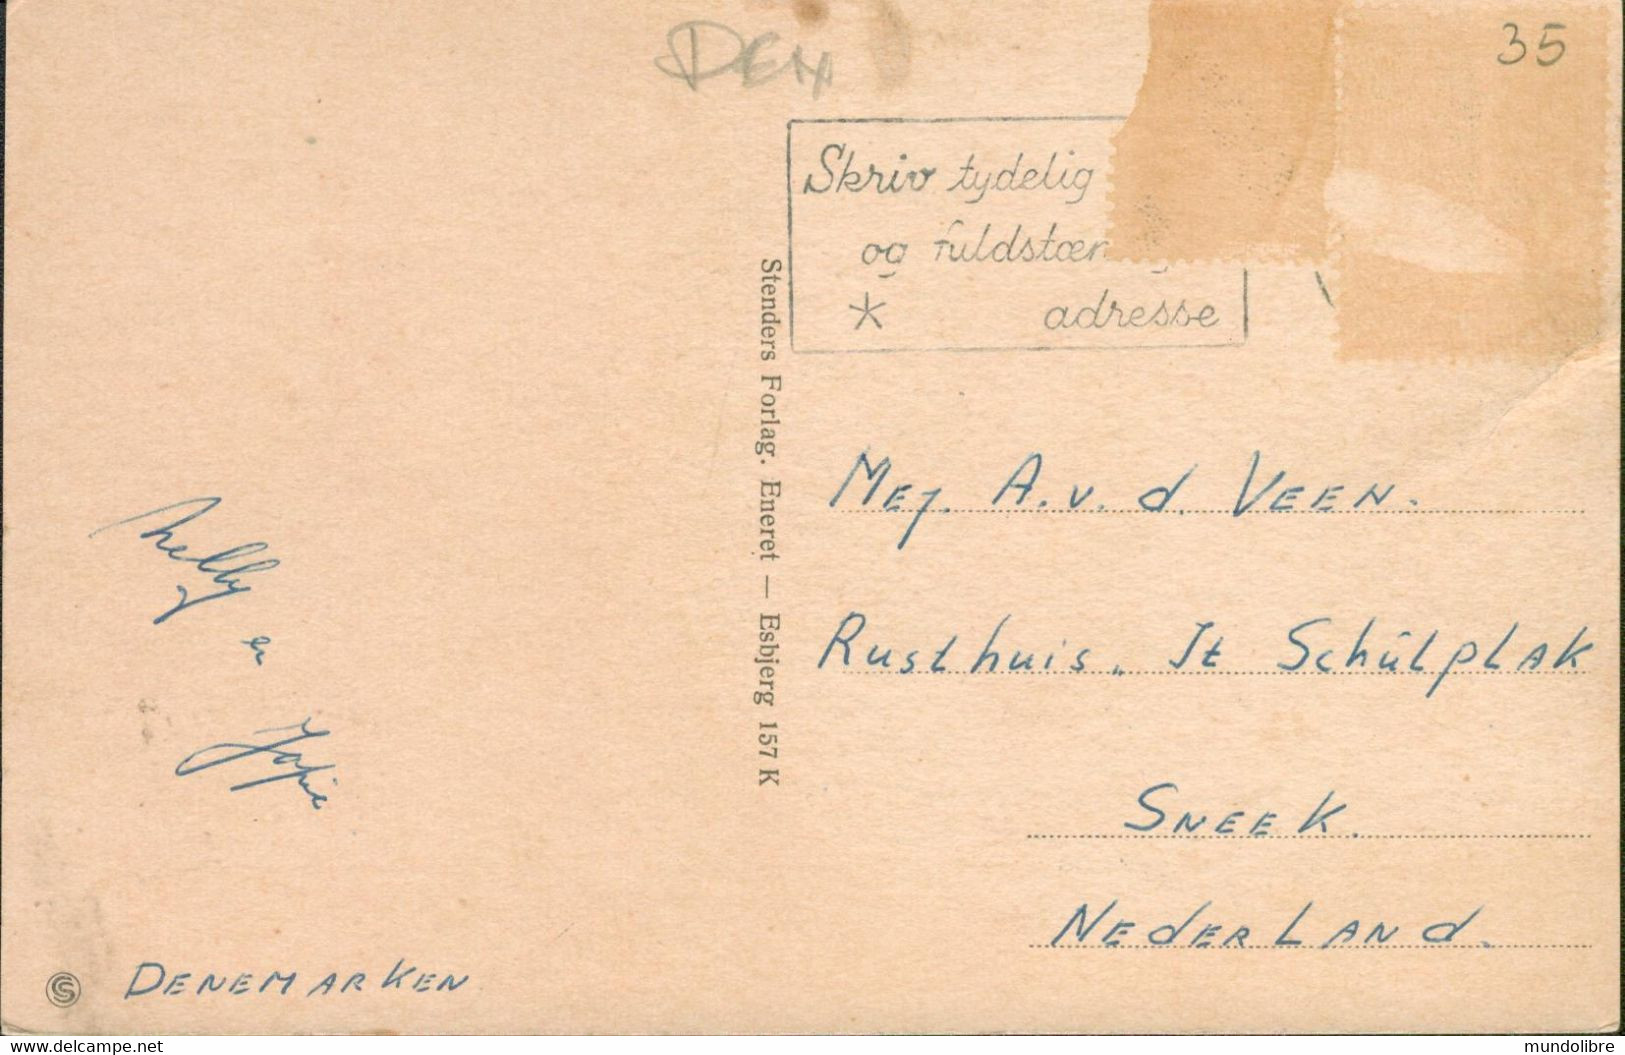 DEN
35
Skriv tydelig
og fuldstændig
* adresse
Stenders Forlag. Eneret — Esbjerg 157 K
Mej. A. v. d. Veen.
Rusthuis „ It Schûlplak
Sneek.
Nederland.
Nelly
en
Jopie
Denemarken
S
www.delcampe.net
mundolibre